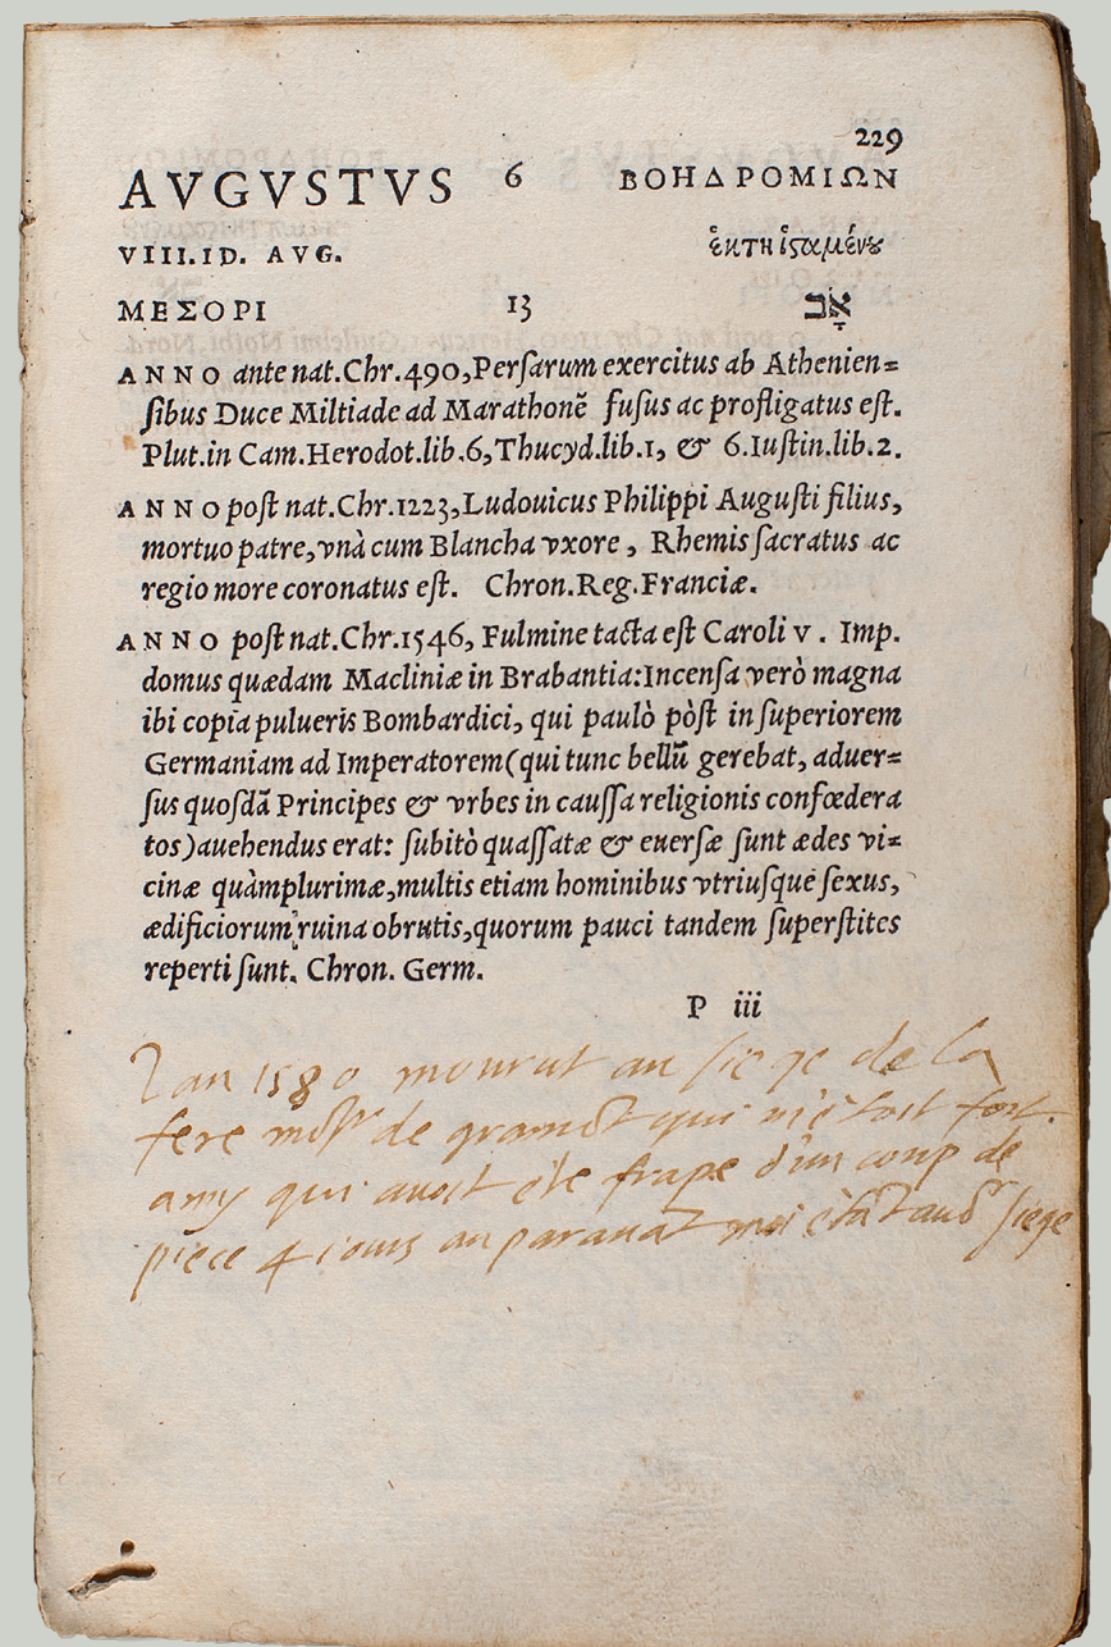 229
AVGVSTVS 6 ΒΟΗΔΡΟΜΙΩΝ
VIII. ID. AVG. ἕκτη ἱϛαμένȣ
ΜΕΣΟΡΙ 13 אָב
ANNO ante nat.Chr.490,Perſarum exercitus ab Athenien=
ſibus Duce Miltiade ad Marathonẽ fuſus ac profligatus eſt.
Plut.in Cam.Herodot.lib.6,Thucyd.lib.1, & 6.Iuſtin.lib.2.
ANNO poſt nat.Chr.1223,Ludouicus Philippi Auguſti filius,
mortuo patre,vnà cum Blancha vxore, Rhemis ſacratus ac
regio more coronatus eſt. Chron.Reg.Franciæ.
ANNO poſt nat.Chr.1546, Fulmine tacta eſt Caroli v. Imp.
domus quædam Macliniæ in Brabantia:Incenſa verò magna
ibi copia pulueris Bombardici, qui paulò pòſt in ſuperiorem
Germaniam ad Imperatorem(qui tunc bellũ gerebat, aduer=
ſus quoſdã Principes & vrbes in cauſſa religionis confœdera
tos)auehendus erat: ſubitò quaſſatæ & euerſæ ſunt ædes vi=
cinæ quàmplurimæ,multis etiam hominibus vtriuſque ſexus,
ædificiorum ruina obrutis,quorum pauci tandem ſuperſtites
reperti ſunt. Chron. Germ.
P iii
lan 1580 mourut au siege de la
fere mõsr de gramõt qui m'étoit fort
amy qui avoit été frapé d'un coup de
piece 4 iours au paravãt moi étãt audt siege